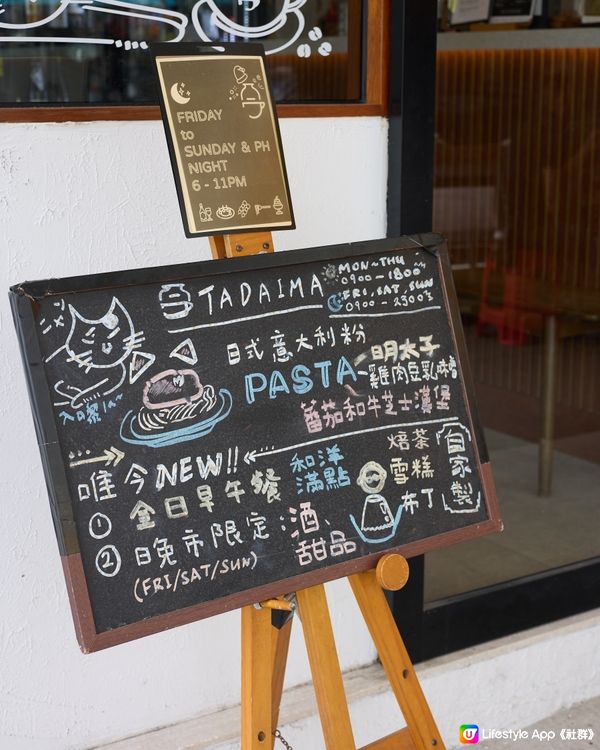 FRIDAY
to
SUNDAY & PH
NIGHT
6 - 11PM
TADAIMA
MON~THU
0900-1800
FRI, SAT, SUN
0900-2300
日式意大利粉
PASTA
明太子
雞肉豆乳味噌
蕃茄和牛芝士漢堡
唯今NEW!!
① 全日早午餐
② 晚市限定:酒、甜品
(FRI/SAT/SUN)
和洋
滿點
焙茶
雪糕
布丁
自家製
Lifestyle App《社群》